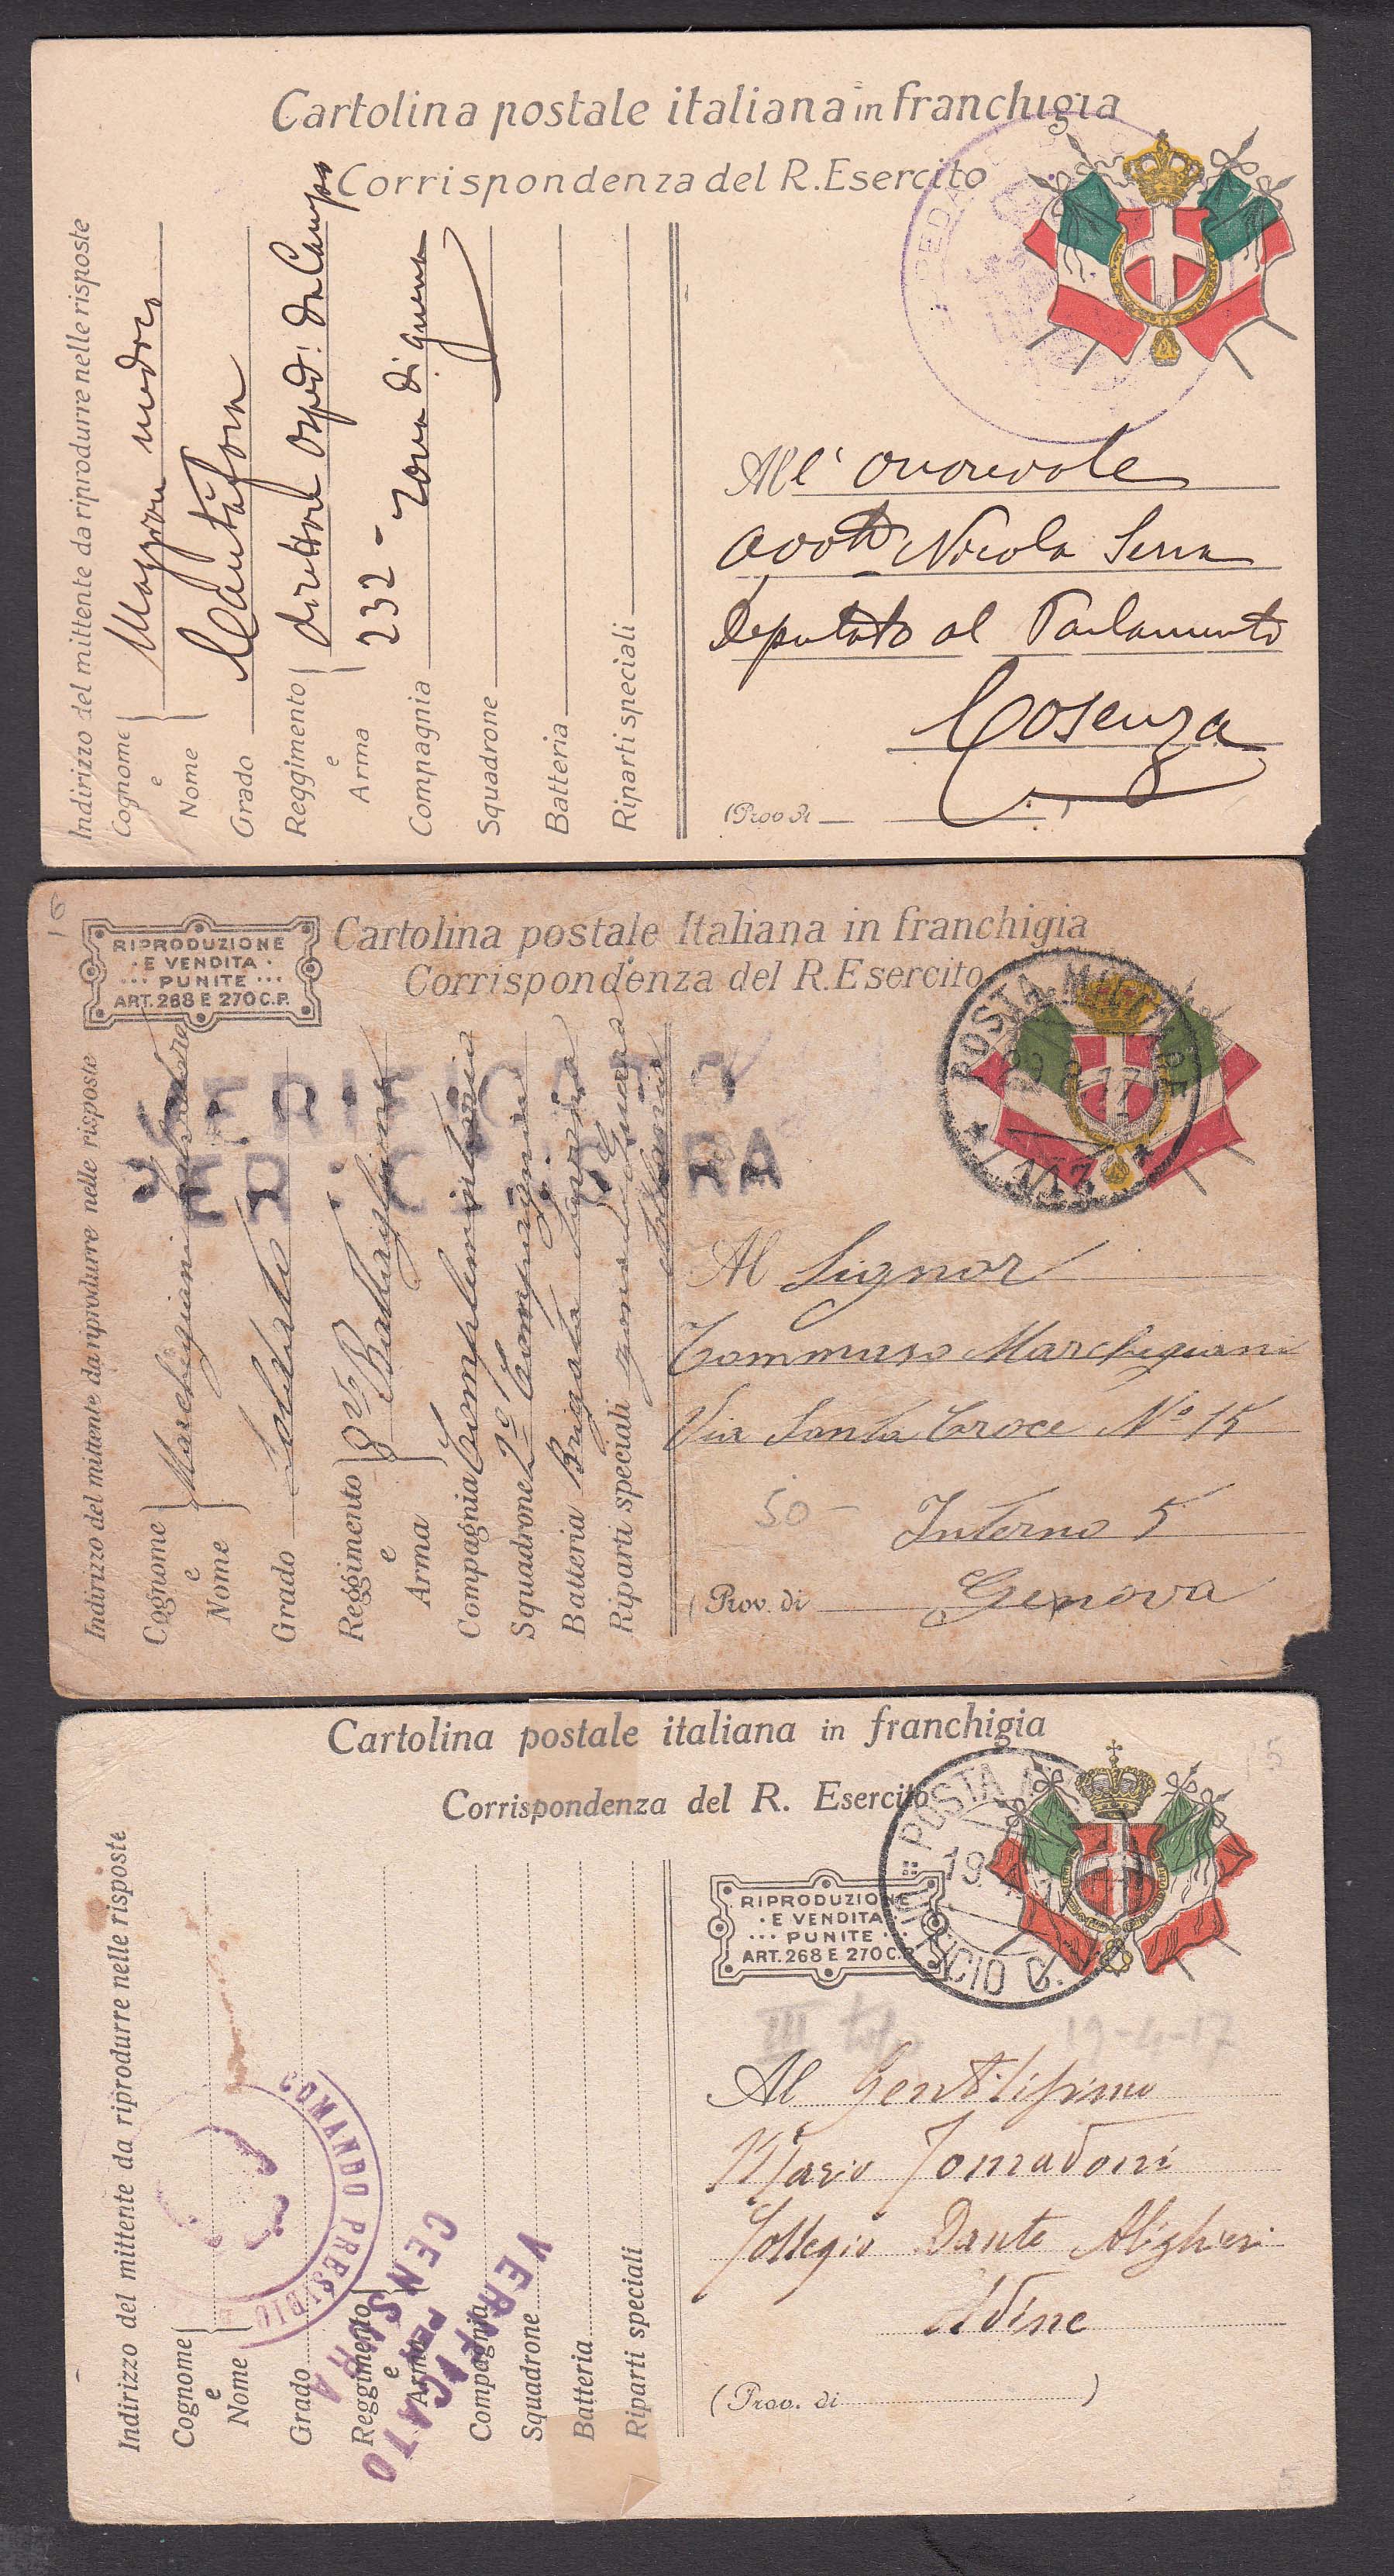 Cartolina postale italiana in franchigia
Corrispondenza del R. Esercito
Indirizzo del mittente da riprodurre nelle risposte
Cognome
e
Nome
Grado
Reggimento
e
Arma
Compagnia
Squadrone
Batteria
Riparti speciali
Maggiore medico
Cantafora
direttore Osped: da Campo
232 - zona di guerra
All' onorevole
Nicola Serra
Deputato al Parlamento
Cosenza
(Prov di
RIPRODUZIONE
· E VENDITA ·
··· PUNITE ···
ART. 268 E 270 C.P.
Cartolina postale Italiana in franchigia
Corrispondenza del R. Esercito
POSTA MILITARE
147
VERIFICATO
PER CENSURA
Indirizzo del mittente da riprodurre nelle risposte
Cognome
e
Nome
Marchegiani
Grado
Soldato
Reggimento
e
Arma
8º Battaglione
Compagnia
Complementare
Squadrone
2º Compagnia
Batteria
Brigata
Riparti speciali
zona di Guerra
Al Signor
Tommaso Marchegiani
Via Santa Croce Nº 15
50 -
Interno 5
(Prov. di
Genova
Cartolina postale italiana in franchigia
Corrispondenza del R. Esercito
RIPRODUZIONE
· E VENDITA ·
··· PUNITE ···
ART. 268 E 270 C.P.
POSTA
19
UFFICIO C.
III
19-4-17
Indirizzo del mittente da riprodurre nelle risposte
Cognome
e
Nome
Grado
Reggimento
e
Arma
Compagnia
Squadrone
Batteria
Riparti speciali
COMANDO PRESIDIO
VERIFICATO
PER
CENSURA
Al Gentilissimo
Mario Tomadoni
Collegio Dante Alighieri
Udine
(Prov. di )